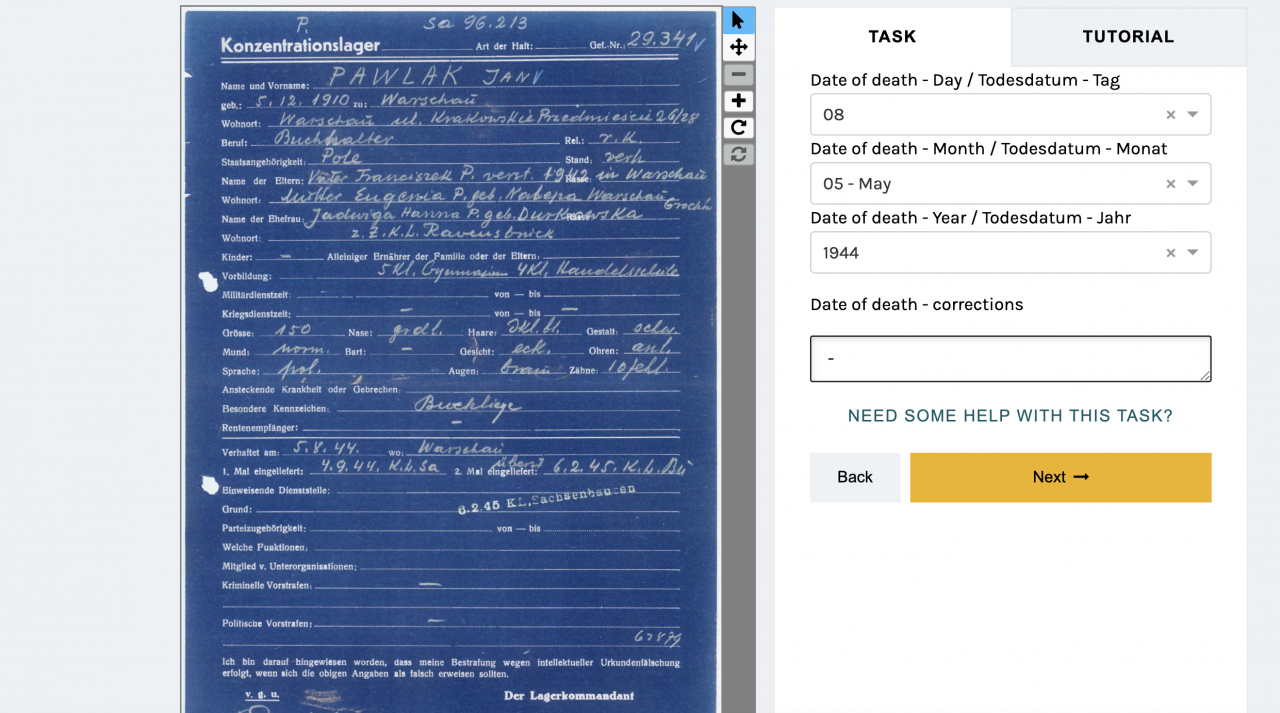 P. Sa 96.213
Konzentrationslager Art der Haft: Gef.-Nr.: 29.341
Name und Vorname: PAWLAK JAN
geb.: 5.12.1910 zu: Warschau
Wohnort: Warschau ul. Krakowskie Przedmiescie 26/28
Beruf: Buchhalter Rel.: r.K.
Staatsangehörigkeit: Pole Stand: verh
Name der Eltern: Vater Franciszek P. verst. 1942 in Warschau Rasse:
Wohnort: Mutter Eugenia P. geb. Warschau
Name der Ehefrau: Jadwiga Hanna P. geb. Durkowska
Wohnort: z.Z. K.L. Ravensbrück
Kinder: — Alleiniger Ernährer der Familie oder der Eltern:
Vorbildung: 5 Kl. Gymnasium 4 Kl. Handelsschule
Militärdienstzeit: von — bis
Kriegsdienstzeit: — von — bis —
Grösse: 150 Nase: grdl. Haare: dkl. bl. Gestalt: schw.
Mund: norm. Bart: — Gesicht: eck. Ohren: anl.
Sprache: pol. Augen: braun Zähne: 10 fehl.
Ansteckende Krankheit oder Gebrechen:
Besondere Kennzeichen:
Rentenempfänger: —
Verhaftet am: 5.8.44. wo: Warschau
1. Mal eingeliefert: 4.9.44. K.L. Sa 2. Mal eingeliefert: überst 6.2.45. K.L. Bu
Einweisende Dienststelle:
6.2.45 KL. Sachsenhausen
Grund:
Parteizugehörigkeit: von — bis
Welche Funktionen:
Mitglied v. Unterorganisationen:
Kriminelle Vorstrafen: —
Politische Vorstrafen: —
62879
Ich bin darauf hingewiesen worden, dass meine Bestrafung wegen intellektueller Urkundenfälschung
erfolgt, wenn sich die obigen Angaben als falsch erweisen sollten.
v. g. u. Der Lagerkommandant
TASK TUTORIAL
Date of death - Day / Todesdatum - Tag
08
Date of death - Month / Todesdatum - Monat
05 - May
Date of death - Year / Todesdatum - Jahr
1944
Date of death - corrections
-
NEED SOME HELP WITH THIS TASK?
Back Next →